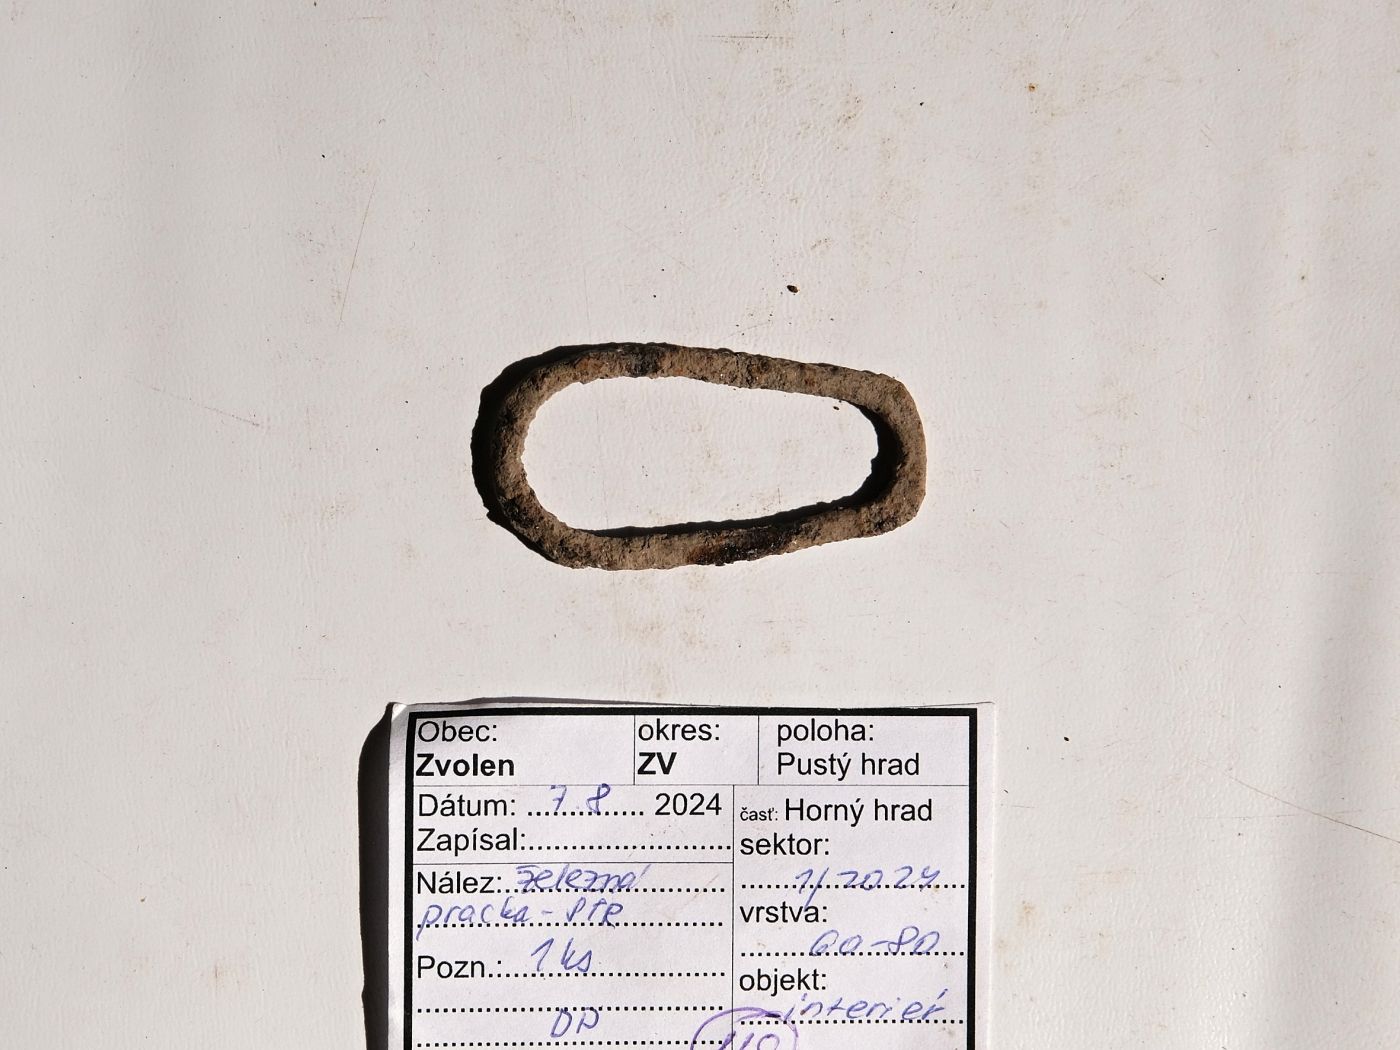 Obec: okres: poloha:
Zvolen ZV Pustý hrad
Dátum: ...7.8..... 2024
Zapísal:..........................
Nález: železná
pracka - STR
Pozn.: 1 ks
DD
časť: Horný hrad
sektor:
1/2024
vrstva:
60-80
objekt:
interiér